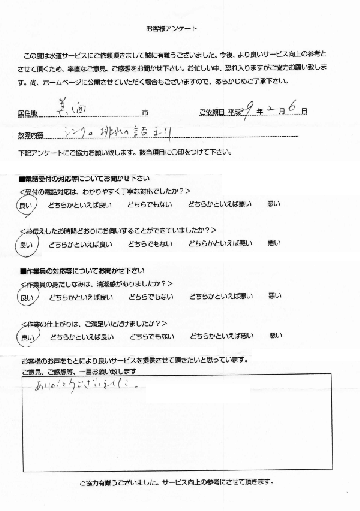 お客様アンケート
この度は水道サービスにご依頼頂きまして誠に有難うございました。今後、より良いサービス向上の参考と
させて頂くため、率直なご意見、ご感想をお聞かせ下さい。お忙しい中、恐れ入りますがご協力お願い致しま
す。尚、ホームページに公開させていただく場合もございますので、あらかじめご了承下さい。
居住地 市 ご依頼日 平成29年2月6日
故障内容 シンクの排水の詰まり
下記アンケートにご協力お願い致します。該当項目に○印をつけて下さい。
■電話受付の対応等についてお聞かせ下さい
<受付の電話対応は、わかりやすく丁寧な対応でしたか?>
良い どちらかといえば良い どちらでもない どちらかといえば悪い 悪い
<お伝えしたお時間どおりにお伺いすることができていましたか?>
良い どちらかといえば良い どちらでもない どちらかといえば悪い 悪い
■作業員の対応等についてお聞かせ下さい
<作業員の身だしなみは、清潔感がありましたか?>
良い どちらかといえば良い どちらでもない どちらかといえば悪い 悪い
<作業の仕上がりは、ご満足いただけましたか?>
良い どちらかといえば良い どちらでもない どちらかといえば悪い 悪い
お客様のお声をもとにより良いサービスを提供させて頂きたいと思っています。
ご意見、ご感想等、一言お願い致します
ありがとうございました。
ご協力有難うございました。サービス向上の参考にさせて頂きます。